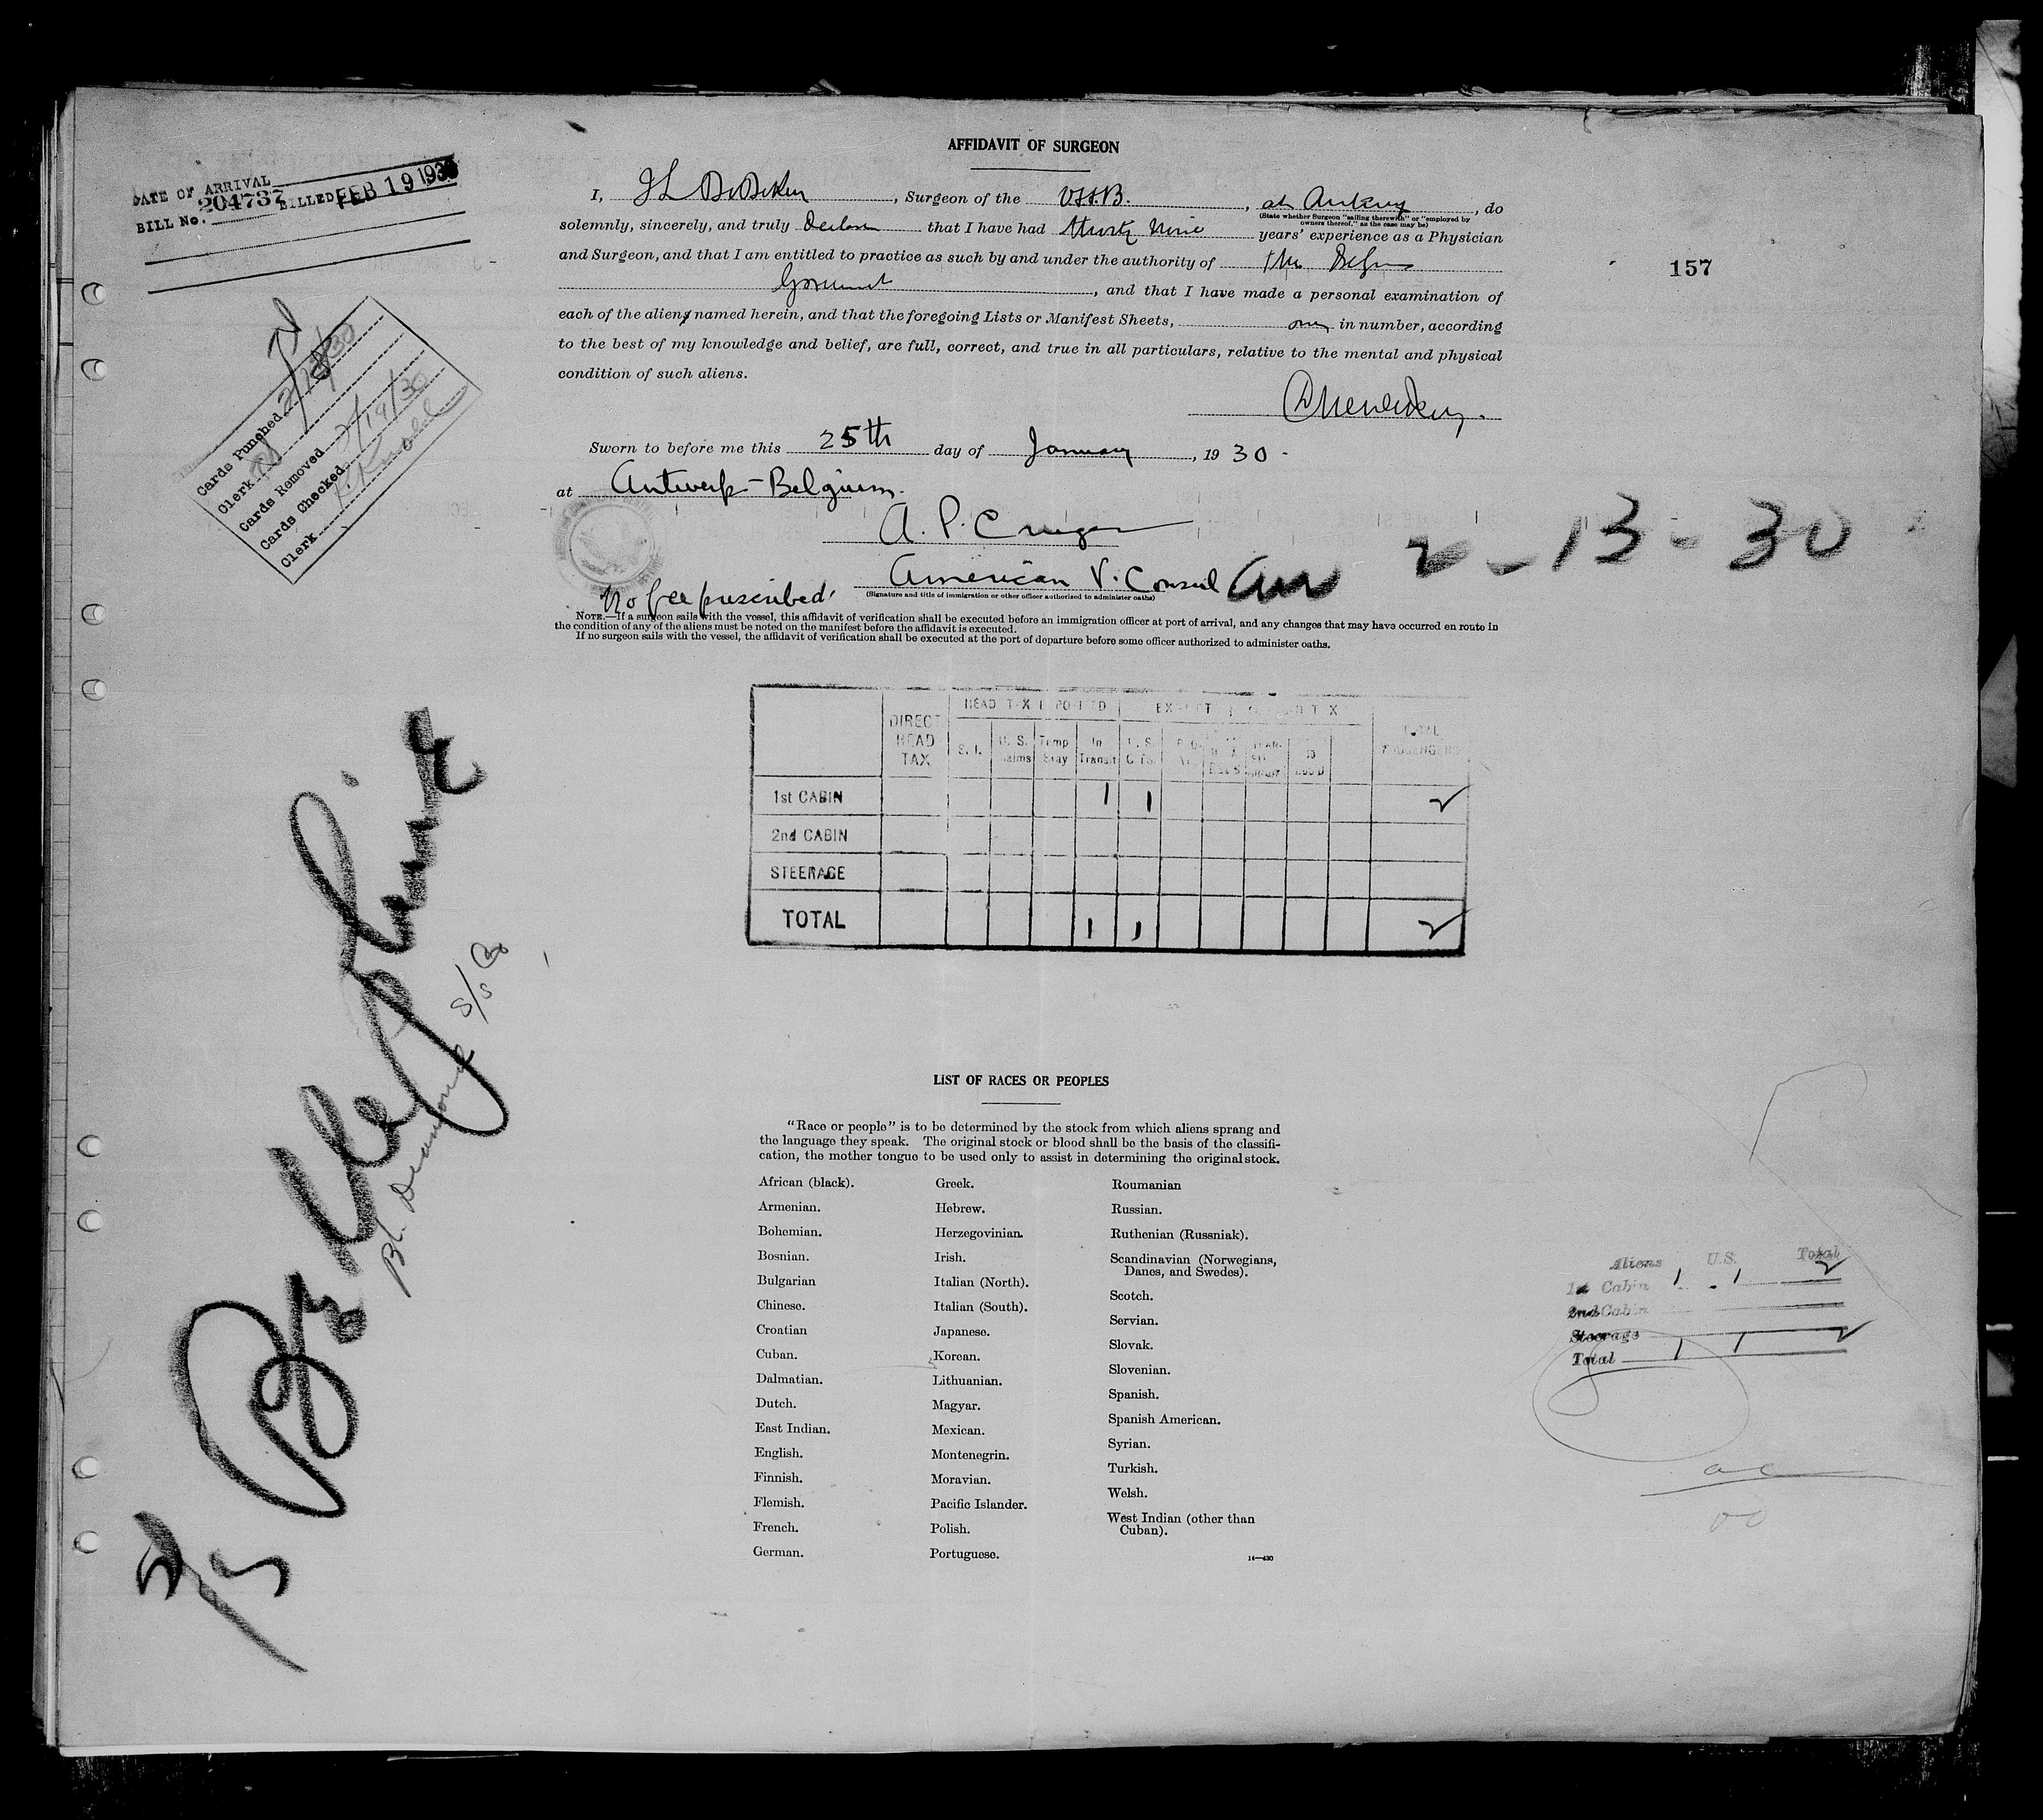 AFFIDAVIT OF SURGEON
DATE OF ARRIVAL
BILL No. 204737 BILLED FEB 19 1930
I, , Surgeon of the , at , do
(State whether Surgeon "sailing therewith" or "employed by
owners thereof," as the case may be)
solemnly, sincerely, and truly that I have had thirty nine years' experience as a Physician
and Surgeon, and that I am entitled to practice as such by and under the authority of the
, and that I have made a personal examination of
each of the aliens named herein, and that the foregoing Lists or Manifest Sheets, one in number, according
to the best of my knowledge and belief, are full, correct, and true in all particulars, relative to the mental and physical
condition of such aliens.
157
Cards Punched
Clerk
Cards Removed 2/19/30
Cards Checked
Clerk
Sworn to before me this 25th day of January, 19 30 -
at Antwerp - Belgium.
A. P. Cruger
American V. Consul
(Signature and title of immigration or other officer authorized to administer oaths)
No fee prescribed.
2 - 13 - 30
NOTE.—If a surgeon sails with the vessel, this affidavit of verification shall be executed before an immigration officer at port of arrival, and any changes that may have occurred en route in
the condition of any of the aliens must be noted on the manifest before the affidavit is executed.
If no surgeon sails with the vessel, the affidavit of verification shall be executed at the port of departure before some officer authorized to administer oaths.
DIRECT HEAD TAX
S. I.
U. S.
Temp Stay
In Transit
TOTAL PASSENGERS
1st CABIN 1 1 2
2nd CABIN
STEERAGE
TOTAL 1 1 2
S/S Co
LIST OF RACES OR PEOPLES
"Race or people" is to be determined by the stock from which aliens sprang and
the language they speak. The original stock or blood shall be the basis of the classifi-
cation, the mother tongue to be used only to assist in determining the original stock.
African (black).
Armenian.
Bohemian.
Bosnian.
Bulgarian
Chinese.
Croatian
Cuban.
Dalmatian.
Dutch.
East Indian.
English.
Finnish.
Flemish.
French.
German.
Greek.
Hebrew.
Herzegovinian.
Irish.
Italian (North).
Italian (South).
Japanese.
Korean.
Lithuanian.
Magyar.
Mexican.
Montenegrin.
Moravian.
Pacific Islander.
Polish.
Portuguese.
Roumanian
Russian.
Ruthenian (Russniak).
Scandinavian (Norwegians,
Danes, and Swedes).
Scotch.
Servian.
Slovak.
Slovenian.
Spanish.
Spanish American.
Syrian.
Turkish.
Welsh.
West Indian (other than
Cuban).
14—430
Aliens U.S. Total
1st Cabin 1 1 2
2nd Cabin
Steerage
Total 1 1 2